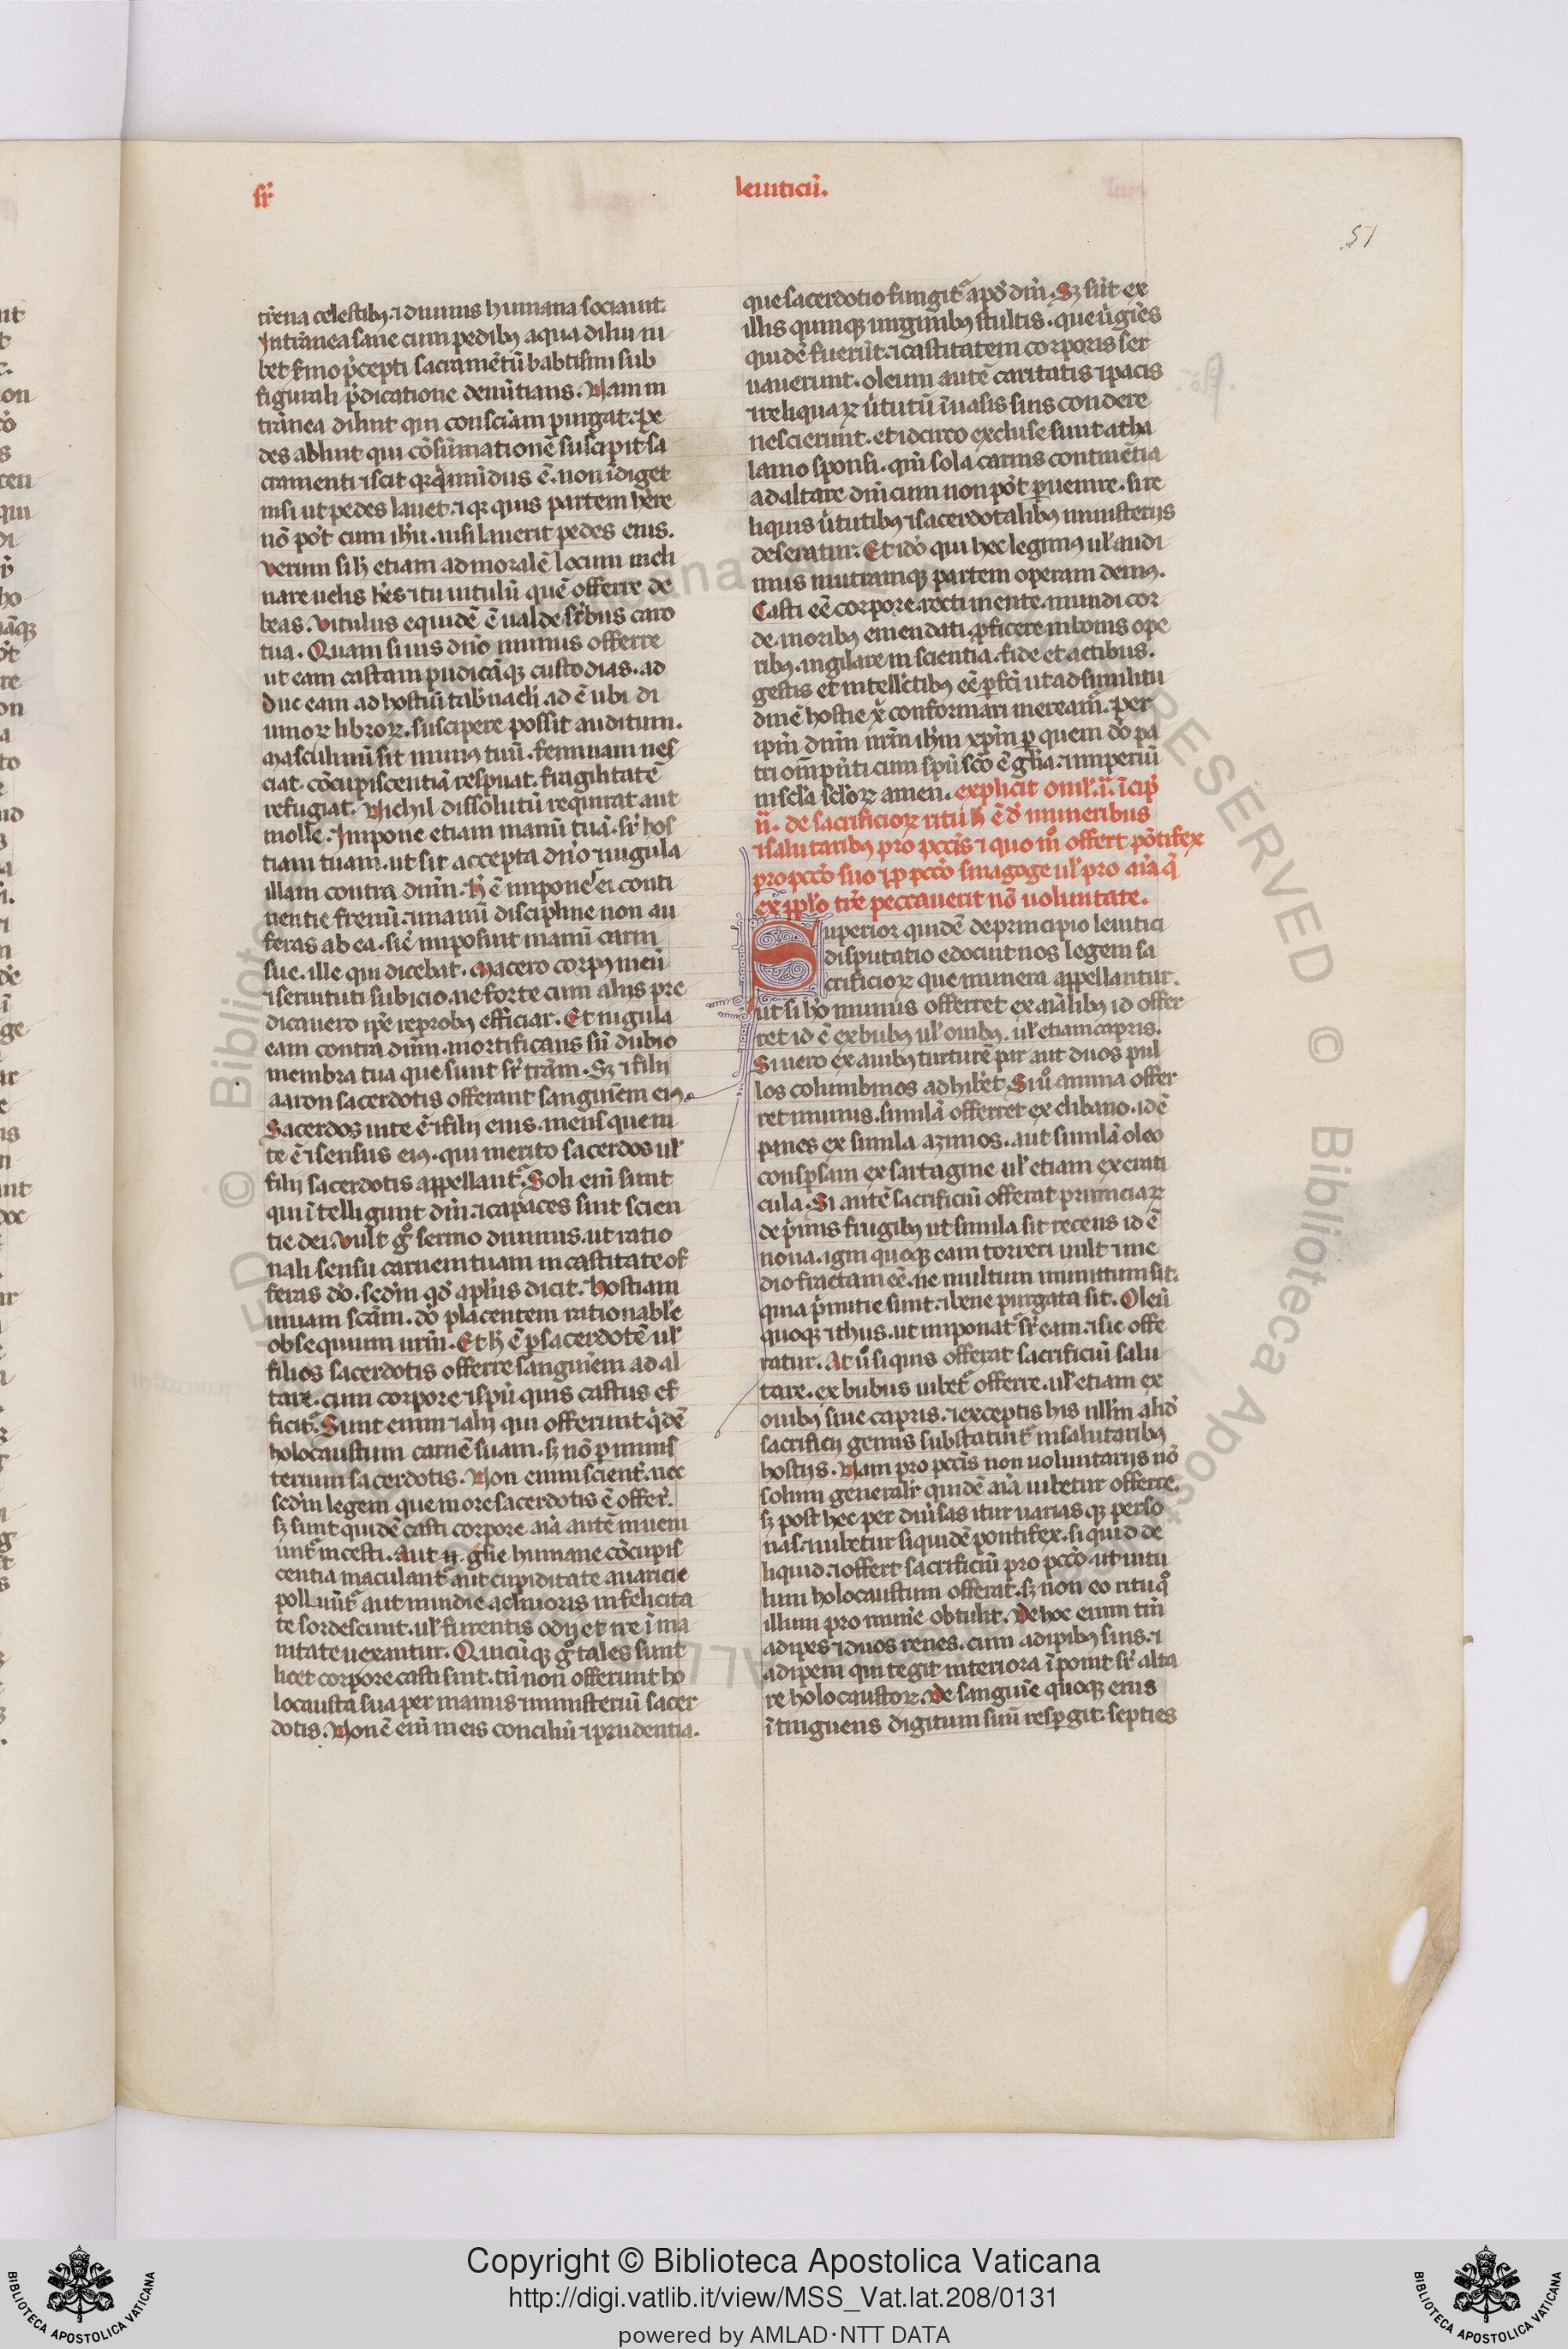 sr̄
leuiticū.
51
tr̄rena celestibꝫ. ⁊ diuinis humana sociauit.
Intranea sane cum pedibꝫ aqua dilui iu
bet s̄mo p̄cepti sacramētū babtismi sub
figurali p̄dicatione denūtians. Nam in
trānea diluit qui consciam̄ purgat. pe
des abluit qui cōsūmationē suscipit sa
cramenti ⁊ scit qꝛ q̄ mūdus ē. non īdiget
nisi ut pedes lauet. ⁊ qꝛ quis partem hēre
nō pōt cum ihū. nisi lauerit pedes eius.
Verum si h̄ etiam ad moralē locum incli
nare uelis hēs ⁊ tu uitulū quē offerre de
beas. Vitulus equidē ē ualde sr̄bus caro
tua. Quam si uis dn̄o munus offerre
ut eam castam pudicāqꝫ custodias. ad
duc eam ad hostiū tab̄nacl̄i. ad ē ubi di
uinoꝝ libroꝝ. suscipere possit auditum.
Masculinū sit munꝰ tuū. feminam nes
ciat. cōcupiscentiā respuat. fragilitatē
refugiat. Nichil dissolutū requirat aut
molle. Impone etiam manū tuā. sr̄ hos
tiam tuam. ut sit accepta dn̄o ⁊ iugula
illam contra dnm̄. h̄ ē impone ei conti
nentie frenū. ⁊ manū discipline non au
feras ab ea. sic̄ imposuit manū carni
sue. ille qui dicebat. Macero corpꝰ meū
⁊ seruituti subicio. ne forte cum aliis pre
dicauero ip̄e reprobꝰ efficiar. Et iugula
eam contra dnm̄. mortificans sn̄ dubio
membra tua que sunt sr̄ tr̄am. Sꝫ ⁊ filij
aaron sacerdotis offerant sanguīem eiꝰ.
Sacerdos in te ē ⁊ filij eius. mens que in
te ē ⁊ sensus eiꝰ. qui merito sacerdos ul̄
filij sacerdotis appellant᷑. Soli eni sunt
qui ītelligunt dm̄. ⁊ capaces sint scien
tie dei. Vult gͦ sermo diuinus. ut ratio
nali sensu carnem tuam in castitate of
feras dō. sedm̄ qđ apl̄us dicit. Hostiam
uiuam scām. dō placentem rationabl̄e
obsequium urm̄. Et h̄ ē p sacerdotē ul̄
filios sacerdotis offerre sanguīem ad al
tare. cum corpore ⁊ spū quis castus ef
ficit᷑. Sunt enim ⁊ alij qui offerunt q̄dē
holocaustum carnē suam. sꝫ nō p minis
terium sacerdotis. Non enim scient᷑. nec
sedm̄ legem que in ore sacerdotis ē offer̄.
sꝫ sunt quidē casti corpore aīa autē inueni
unt᷑ incesti. Aut ⁊ gl̄ie humane cōcupis
centia maculant᷑ aut cupiditate auaricie
polluūt᷑ aut inuidie ac liuoris infelicita
te sordescunt. ul̄ furentis odij et ire īma
nitate uexantur. Quicūqꝫ gͦ tales sunt
licet corpore casti sint. tn̄ non offerunt ho
locausta sua per manus ⁊ ministeriū sacer
dotis. Non ē eni in eis conciliū ⁊ prudentia.
que sacerdotio fungit᷑ apđ dm̄. Sꝫ sūt ex
illis quinqꝫ uirginibꝫ stultis. que ūgīes
quidē fuerūt. ⁊ castitatem corporis ser
uauerunt. oleum autē caritatis ⁊ pacis
⁊ reliquaꝝ ūtutū ī uasis suis condere
nescierunt. et idcirco excluse sunt a tha
lamo sponsi. qm̄ sola carnis continētia
ad altare dn̄icum non pōt p̄uenire. si re
liquis ūtutibꝫ ⁊ sacerdotalibꝫ ministerijs
deseratur. Et idō qui hec legimꝰ ul̄ audi
mus in utramqꝫ partem operam demꝰ.
Casti eē corpore. recti mente. mundi cor
de. moribꝫ emendati. pficere in bonis ope
ribꝫ. uigilare in scientia. fide et actibus.
gestis et intell̄ctibꝫ eē pfcī ut ad similitu
dinē hostie x̄ conformari meream᷑. per
ipm̄ dnm̄ nrm̄ ihm̄ xpm̄ p quem dō pa
tri om̄p̄nti cum spū scō ē gl̄ia. ⁊ imperiū
in scl̄a scl̄oꝝ amen. explicit oml̄. ı̄. īcip̄
ıı̄. de sacrificioꝝ ritu h̄ ē đ muneribus
⁊ salutaribꝫ pro pccīs ⁊ quo mͦ offert pōtifex
pro pccō suo ⁊ p pccō sinagoge ul̄ pro aīa q̄
ex ppl̄o tr̄e peccauerit nō uoluntate.
Superioꝛ quidē de principio leuitici
disputatio edocuit nos legem sa
crificioꝝ que munera appellantur.
ut si hō munus offerret ex aīalibꝫ id offer
ret id ē ex bubꝫ ul̄ ouibꝫ. ul̄ etiam capris.
Si uero ex auibꝫ turturē par aut duos pul
los columbinos adhibet. Si ūͦ anima offer
ret munus. similā offerret ex clibano. id ē
panes ex simila azimos. aut similā oleo
conspsam ex sartagine ul̄ etiam ex crati
cula. Si autē sacrificiū offerat primiciaꝝ
de p̄mis frugibꝫ ut simila sit recens id ē
noua. igni quoqꝫ eam torreri uult ⁊ me
dio fractam eē. ne multum minutum sit.
quia p̄mitie sunt. ⁊ bene purgata sit. Oleū
quoqꝫ ⁊ thus. ut imponat᷑ sr̄ eam. ⁊ sic offe
ratur. At ūͦ si quis offerat sacrificiū salu
tare. ex bubus iubet᷑ offerre. ul̄ etiam ex
ouibꝫ siue capris. ⁊ exceptis his nll̄m aliđ
sacrificij genus substatuit᷑ in salutaribꝫ
hostijs. Nam pro pccīs non uoluntarijs nō
solum generalr̄ quidē aīa iubetur offerre.
sꝫ post hec per diūsas itur uarias qꝫ perso
nas. ⁊ iubetur siquidē pontifex. si quid de
liquid. ⁊ offert sacrificiū pro pccō. ut uitu
lum holocaustum offerat. sꝫ non eo ritu qͦ
illum pro munīe obtulit. De hoc enim tm̄
adipes ⁊ duos renes. cum adipibꝫ suis. ⁊
adipem qui tegit interiora īponit sr̄ alta
re holocaustoꝝ. De sanguīe quoqꝫ eius
ītinguens digitum suū respgit. septies
Copyright © Biblioteca Apostolica Vaticana
http://digi.vatlib.it/view/MSS_Vat.lat.208/0131
powered by AMLAD·NTT DATA
BIBLIOTECA APOSTOLICA VATICANA
BIBLIOTECA APOSTOLICA VATICANA